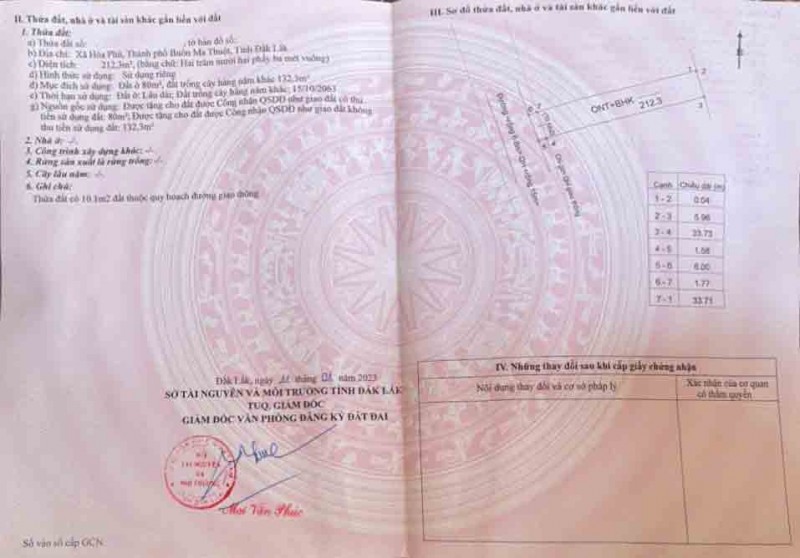 II. Thửa đất, nhà ở và tài sản khác gắn liền với đất
1. Thửa đất:
a) Thửa đất số: , tờ bản đồ số:
b) Địa chỉ: Xã Hòa Phú, Thành phố Buôn Ma Thuột, Tỉnh Đắk Lắk
c) Diện tích: 212,3m², (bằng chữ: Hai trăm mười hai phẩy ba mét vuông)
d) Hình thức sử dụng: Sử dụng riêng
đ) Mục đích sử dụng: Đất ở 80m², đất trồng cây hàng năm khác 132,3m²
e) Thời hạn sử dụng: Đất ở: Lâu dài; Đất trồng cây hàng năm khác: 15/10/2063
g) Nguồn gốc sử dụng: Được tặng cho đất được Công nhận QSDĐ như giao đất có thu
tiền sử dụng đất: 80m²; Được tặng cho đất được Công nhận QSDĐ như giao đất không
thu tiền sử dụng đất: 132,3m²
2. Nhà ở: -/-
3. Công trình xây dựng khác: -/-
4. Rừng sản xuất là rừng trồng: -/-
5. Cây lâu năm: -/-
6. Ghi chú:
Thửa đất có 10.1m2 đất thuộc quy hoạch đường giao thông
Đắk Lắk, ngày tháng 01 năm 2023
SỞ TÀI NGUYÊN VÀ MÔI TRƯỜNG TỈNH ĐẮK LẮK
TUQ. GIÁM ĐỐC
GIÁM ĐỐC VĂN PHÒNG ĐĂNG KÝ ĐẤT ĐAI
SỞ
TÀI NGUYÊN
VÀ
MÔI TRƯỜNG
Mai Văn Phúc
Số vào sổ cấp GCN
III. Sơ đồ thửa đất, nhà ở và tài sản khác gắn liền với đất
1 2
ONT+BHK 212.3
3
6 7
5 4
Cạnh Chiều dài (m)
1-2 0.04
2-3 5.96
3-4 33.73
4-5 1.58
5-6 6.00
6-7 1.77
7-1 33.71
IV. Những thay đổi sau khi cấp giấy chứng nhận
Nội dung thay đổi và cơ sở pháp lý
Xác nhận của cơ quan
có thẩm quyền